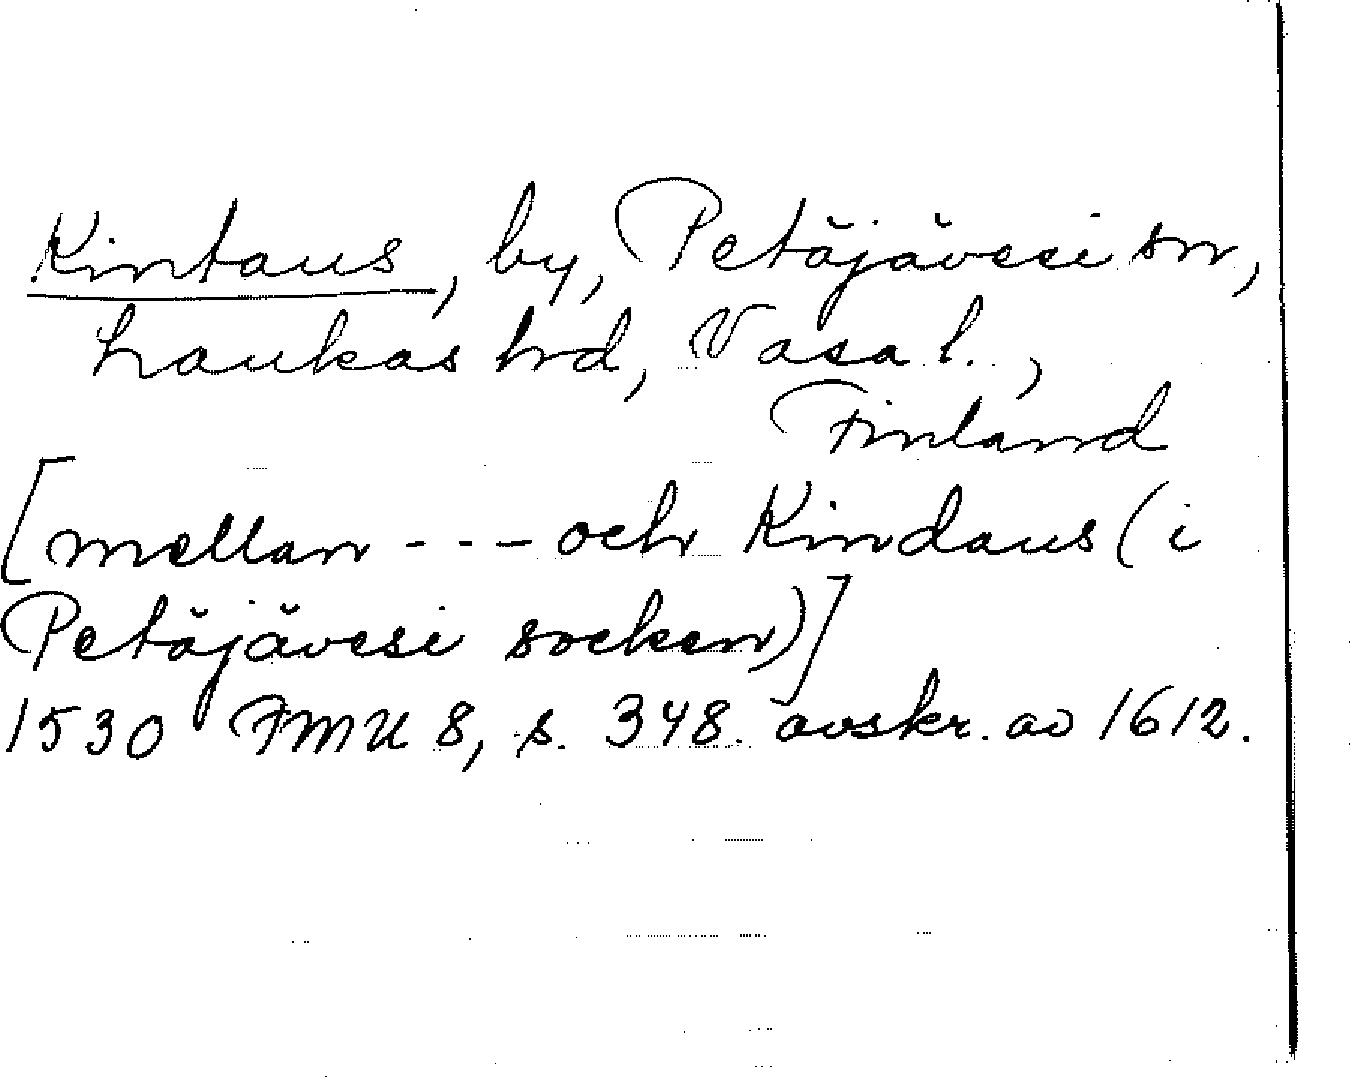 Kintaus, by, Petäjävesi sn,
Laukas hd, Vasa l.,
Finland
[mellan --- och Kindaus (i
Petäjävesi socken)]
1530 FMU 8, s. 348. avskr. av 1612.